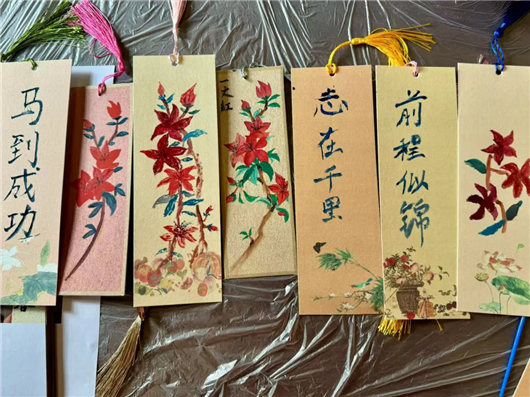 马到成功
一丈红
志在千里
前程似锦